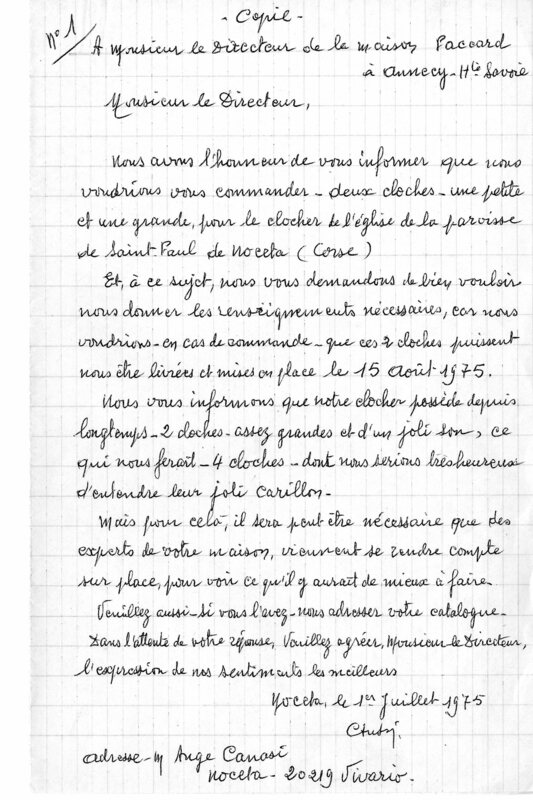 - Copie -
n° 1
A Monsieur le Directeur de la maison Paccard
à Annecy - Hte Savoie
Monsieur le Directeur,
Nous avons l'honneur de vous informer que nous
voudrions vous commander - deux cloches - une petite
et une grande, pour le clocher de l'église de la paroisse
de Saint-Paul de Noceta (Corse)
Et, à ce sujet, nous vous demandons de bien vouloir
nous donner les renseignements nécessaires, car nous
voudrions - en cas de commande - que ces 2 cloches puissent
nous être livrées et mises en place le 15 Août 1975.
Nous vous informons que notre clocher possède depuis
longtemps - 2 cloches - assez grandes et d'un joli son, ce
qui nous ferait - 4 cloches - dont nous serions très heureux
d'entendre leur joli carillon -
Mais pour cela, il sera peut être nécessaire que des
experts de votre maison, viennent se rendre compte
sur place, pour voir ce qu'il y aurait de mieux à faire -
Veuillez aussi - si vous l'avez - nous adresser votre catalogue -
Dans l'attente de votre réponse, Veuillez agréer, Monsieur le Directeur,
l'expression de nos sentiments les meilleurs
Noceta, le 1er Juillet 1975
adresse - M Ange Canasi
Noceta - 20219 Vivario.